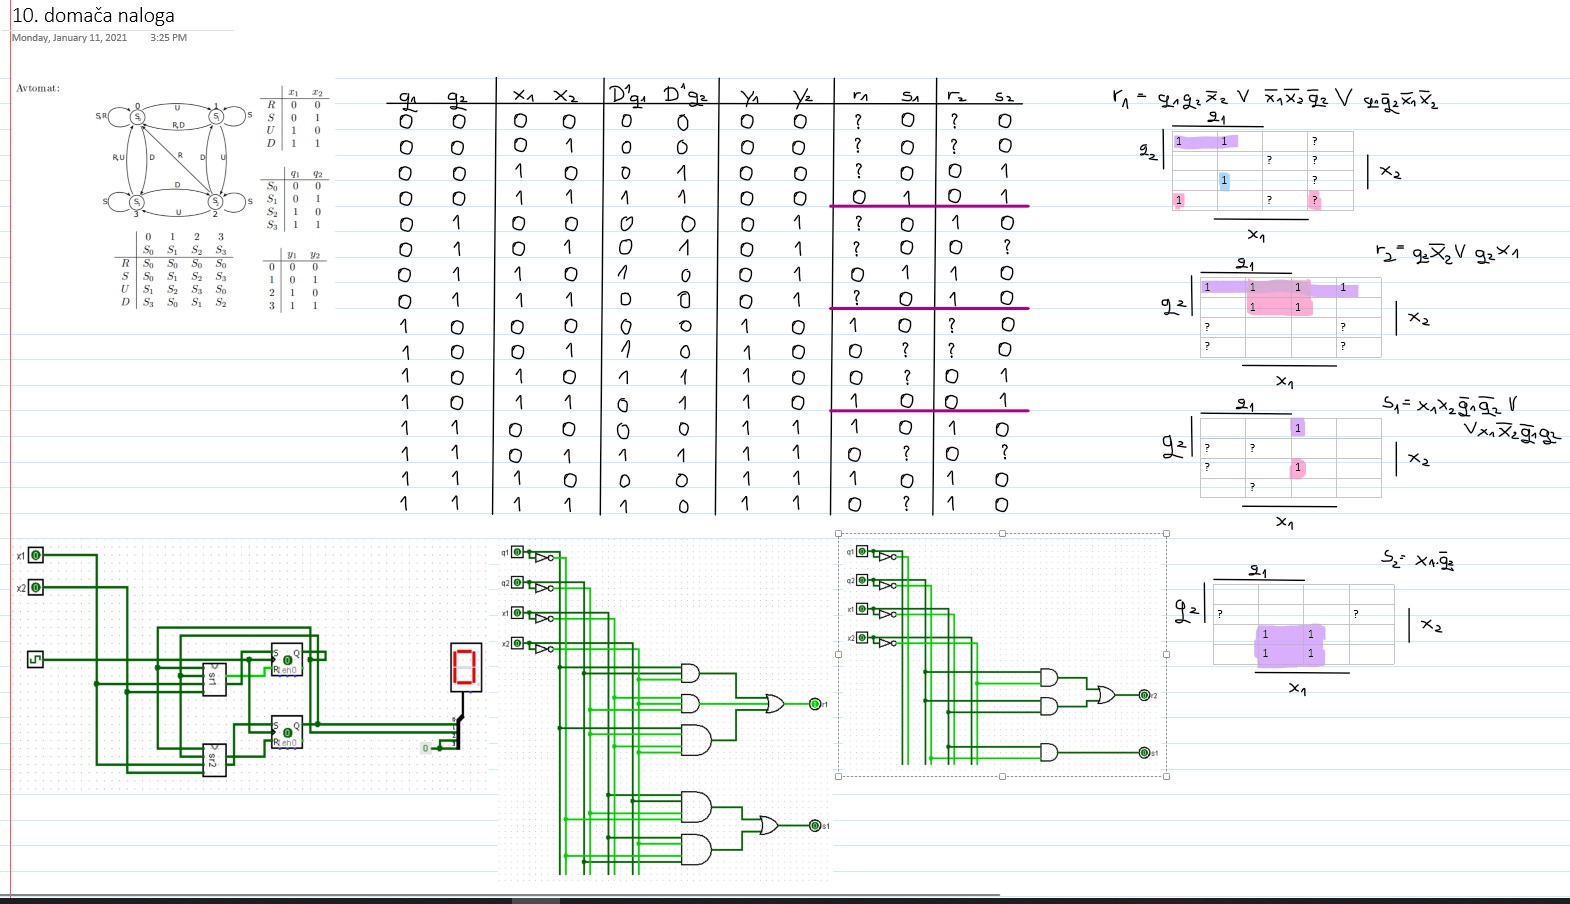 10. domača naloga
Monday, January 11, 2021 3:25 PM
Avtomat:
x₁ x₂
R 0 0
S 0 1
U 1 0
D 1 1
q₁ q₂
S₀ 0 0
S₁ 0 1
S₂ 1 0
S₃ 1 1
0 1 2 3
S₀ S₁ S₂ S₃
R S₀ S₀ S₀ S₀
S S₀ S₁ S₂ S₃
U S₁ S₂ S₃ S₀
D S₃ S₀ S₁ S₂
y₁ y₂
0 0 0
1 0 1
2 1 0
3 1 1
q1 q2 x1 x2 D¹q1 D¹q2 y1 y2 r1 s1 r2 s2
0 0 0 0 0 0 0 0 ? 0 ? 0
0 0 0 1 0 0 0 0 ? 0 ? 0
0 0 1 0 0 1 0 0 ? 0 0 1
0 0 1 1 1 1 0 0 0 1 0 1
0 1 0 0 0 0 0 1 ? 0 1 0
0 1 0 1 0 1 0 1 ? 0 0 ?
0 1 1 0 1 0 0 1 0 1 1 0
0 1 1 1 0 0 0 1 ? 0 1 0
1 0 0 0 0 0 1 0 1 0 ? 0
1 0 0 1 1 0 1 0 0 ? ? 0
1 0 1 0 1 1 1 0 0 ? 0 1
1 0 1 1 0 1 1 0 1 0 0 1
1 1 0 0 0 0 1 1 1 0 1 0
1 1 0 1 1 1 1 1 0 ? 0 ?
1 1 1 0 0 0 1 1 1 0 1 0
1 1 1 1 1 0 1 1 0 ? 1 0
r₁ = q₁q₂x̄₂ V x̄₁x̄₂q̄₂ V q₁q̄₂x̄₁x̄₂
q1
q2
1 1 ?
? ?
1 ?
1 ? ?
x2
x1
r₂ = q₂x̄₂ V q₂x₁
q1
q2
1 1 1 1
1 1
? ?
? ?
x2
x1
s₁ = x₁x₂q̄₁q̄₂ V
V x₁x̄₂q̄₁q₂
q1
q2
1
? ?
? 1
?
x2
x1
s₂ = x₁·q̄₂
q1
q2
? ?
1 1
1 1
x2
x1
x1
x2
S Q
0
R en0
sr1
S Q
0
R en0
sr2
0
q1
q2
x1
x2
r1
s1
q1
q2
x1
x2
r2
s1